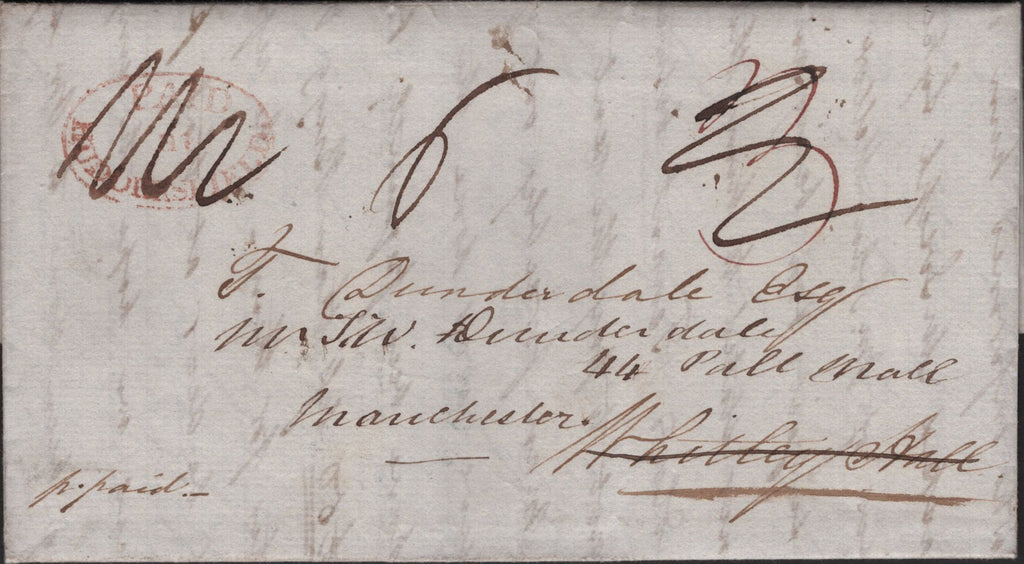 PAID
HUDDERSFIELD
T. Dunderdale Esq
Mr T.W. Dunderdale
44 Pall Mall
Manchester.
Whitley Hall
p. paid.—